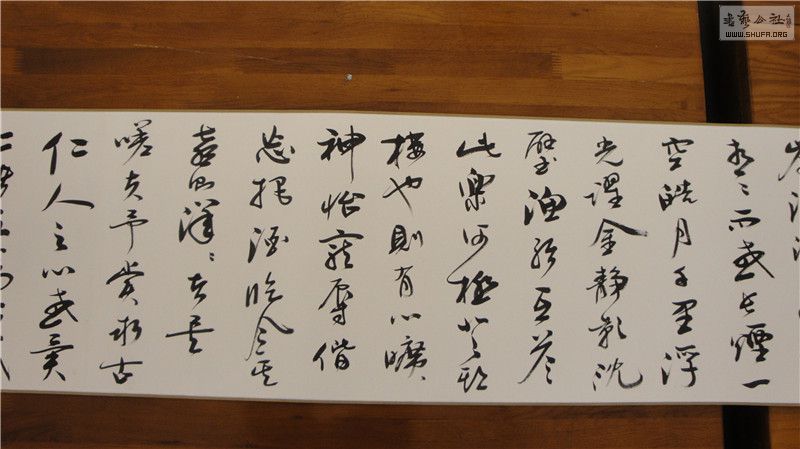 青〻而或長煙一
空皓月千里浮
光躍金靜影沈
璧漁歌互答
此樂何極登斯
樓也則有心曠
神怡寵辱偕
忘把酒臨風其
喜洋〻者矣
嗟夫予嘗求古
仁人之心或異
書藝公社
WWW.SHUFA.ORG